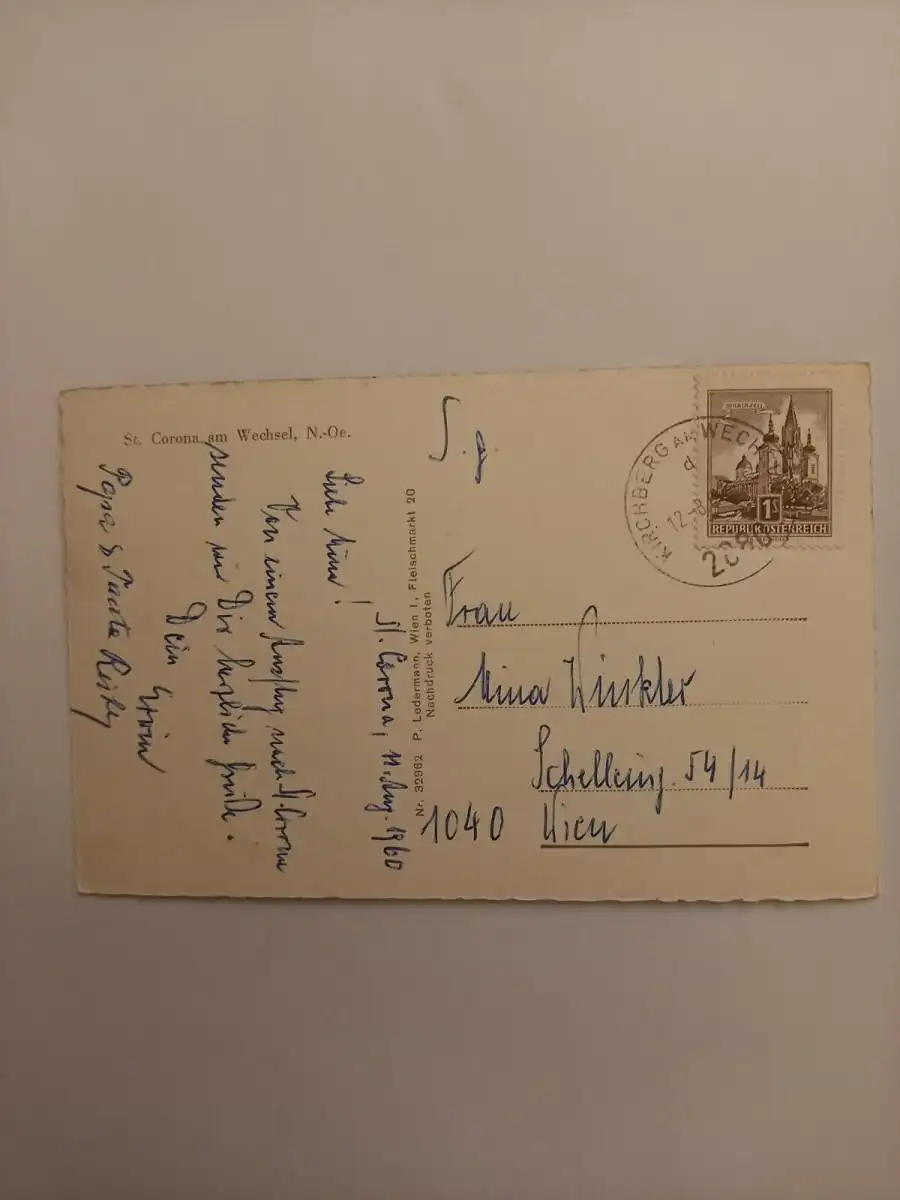 St. Corona am Wechsel, N.-Oe.
St. Corona, 11. Aug. 1960
Liebe Mina!
Von einem Ausflug nach St. Corona
senden wir Dir herzliche Grüße.
Dein Erwin
Papa & Tante
Nr. 32962 P. Ledermann, Wien I, Fleischmarkt 20
Nachdruck verboten
KIRCHBERG AM WECH
12.-8
MARIAZELL
1S
REPUBLIK ÖSTERREICH
Frau
Mina Winkler
Schelleing. 54/14
1040 Wien